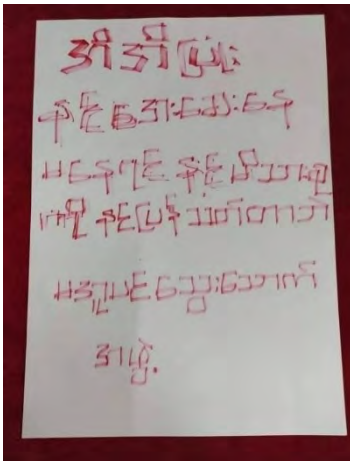 အိအိပြုံး
နင် အေးဆေးနေ
မနေရင် နင့်မိသားစု
ကို နင်ပြန်သတ်တာဘဲ
မအူပင် သွေးသောက်
အဖွဲ့